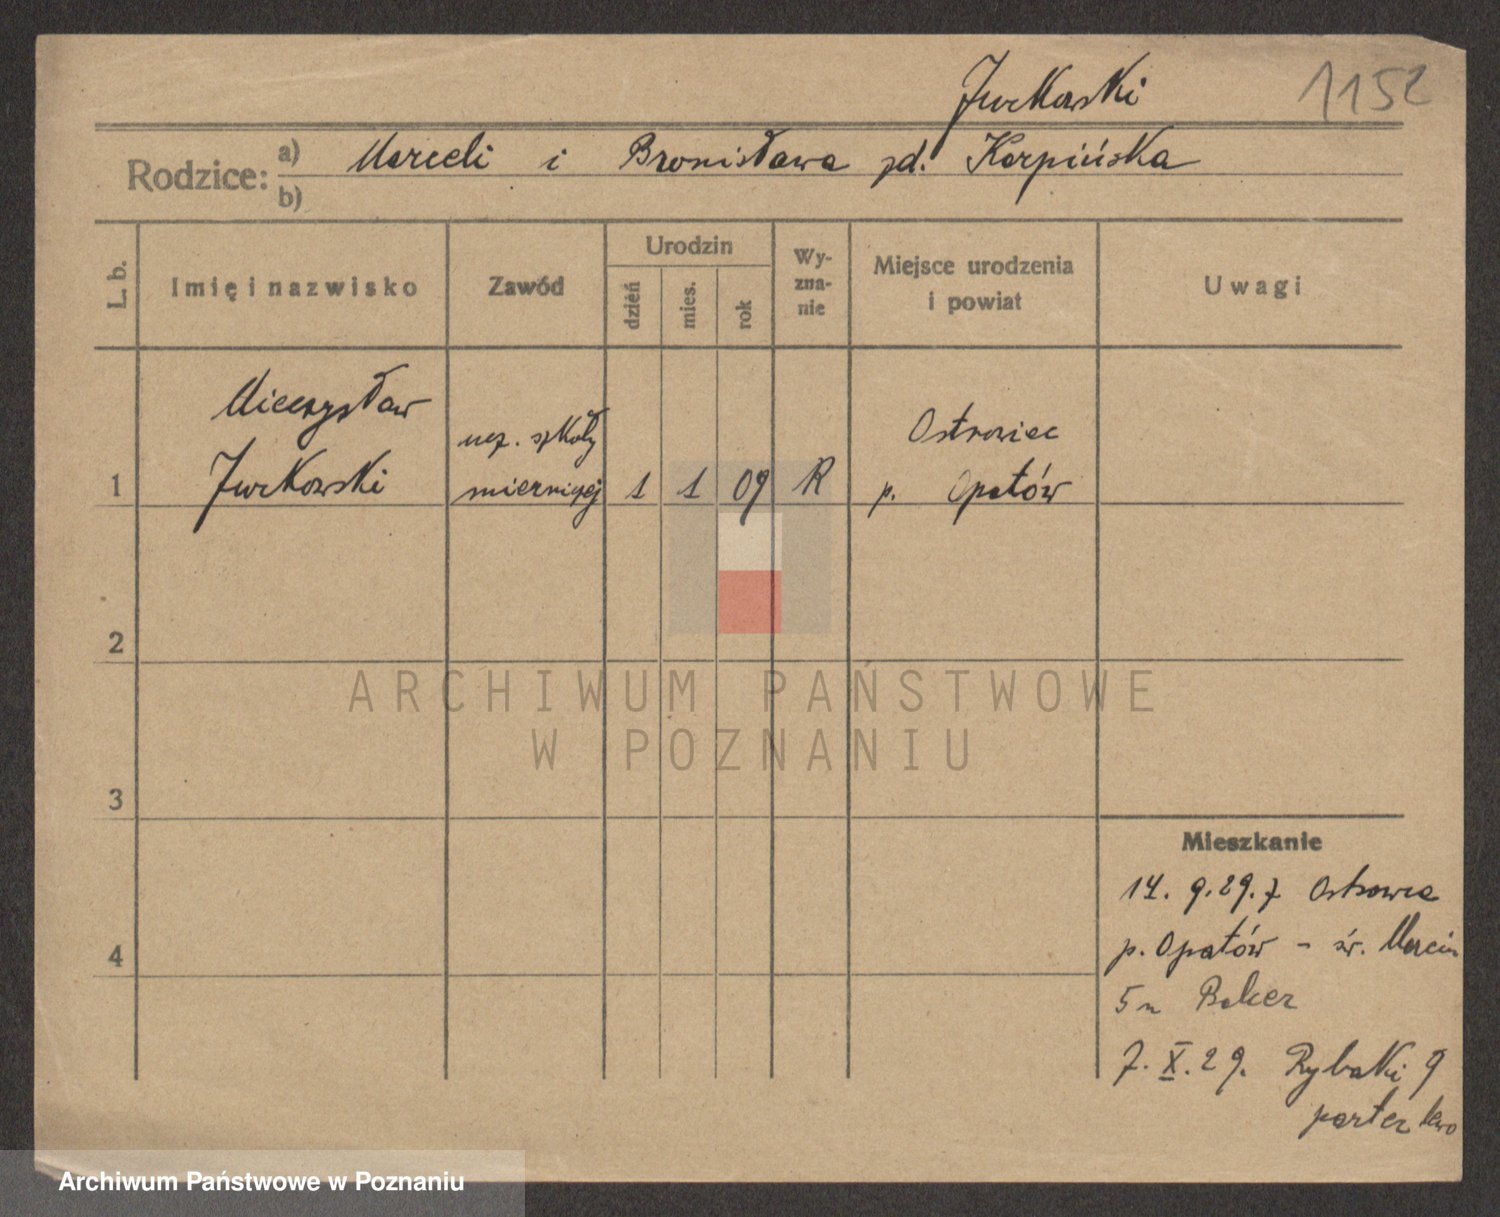 Jurkowski 1152
Rodzice: a) Marceli i Bronisława zd. Karpińska
b)
L. b. Imię i nazwisko Zawód Urodzin dzień mies. rok Wyznanie Miejsce urodzenia i powiat Uwagi
Mieczysław
Jurkowski
ucz. szkoły
mierniczej
1 1 1 09 R
Ostrowiec
p. Opatów
2
3
4
Mieszkanie
14. 9. 29. z Ostrowca
p. Opatów - św. Marcin
5 u
7. X. 29. Rybaki 9
parter lewo
ARCHIWUM PAŃSTWOWE
W POZNANIU
Archiwum Państwowe w Poznaniu